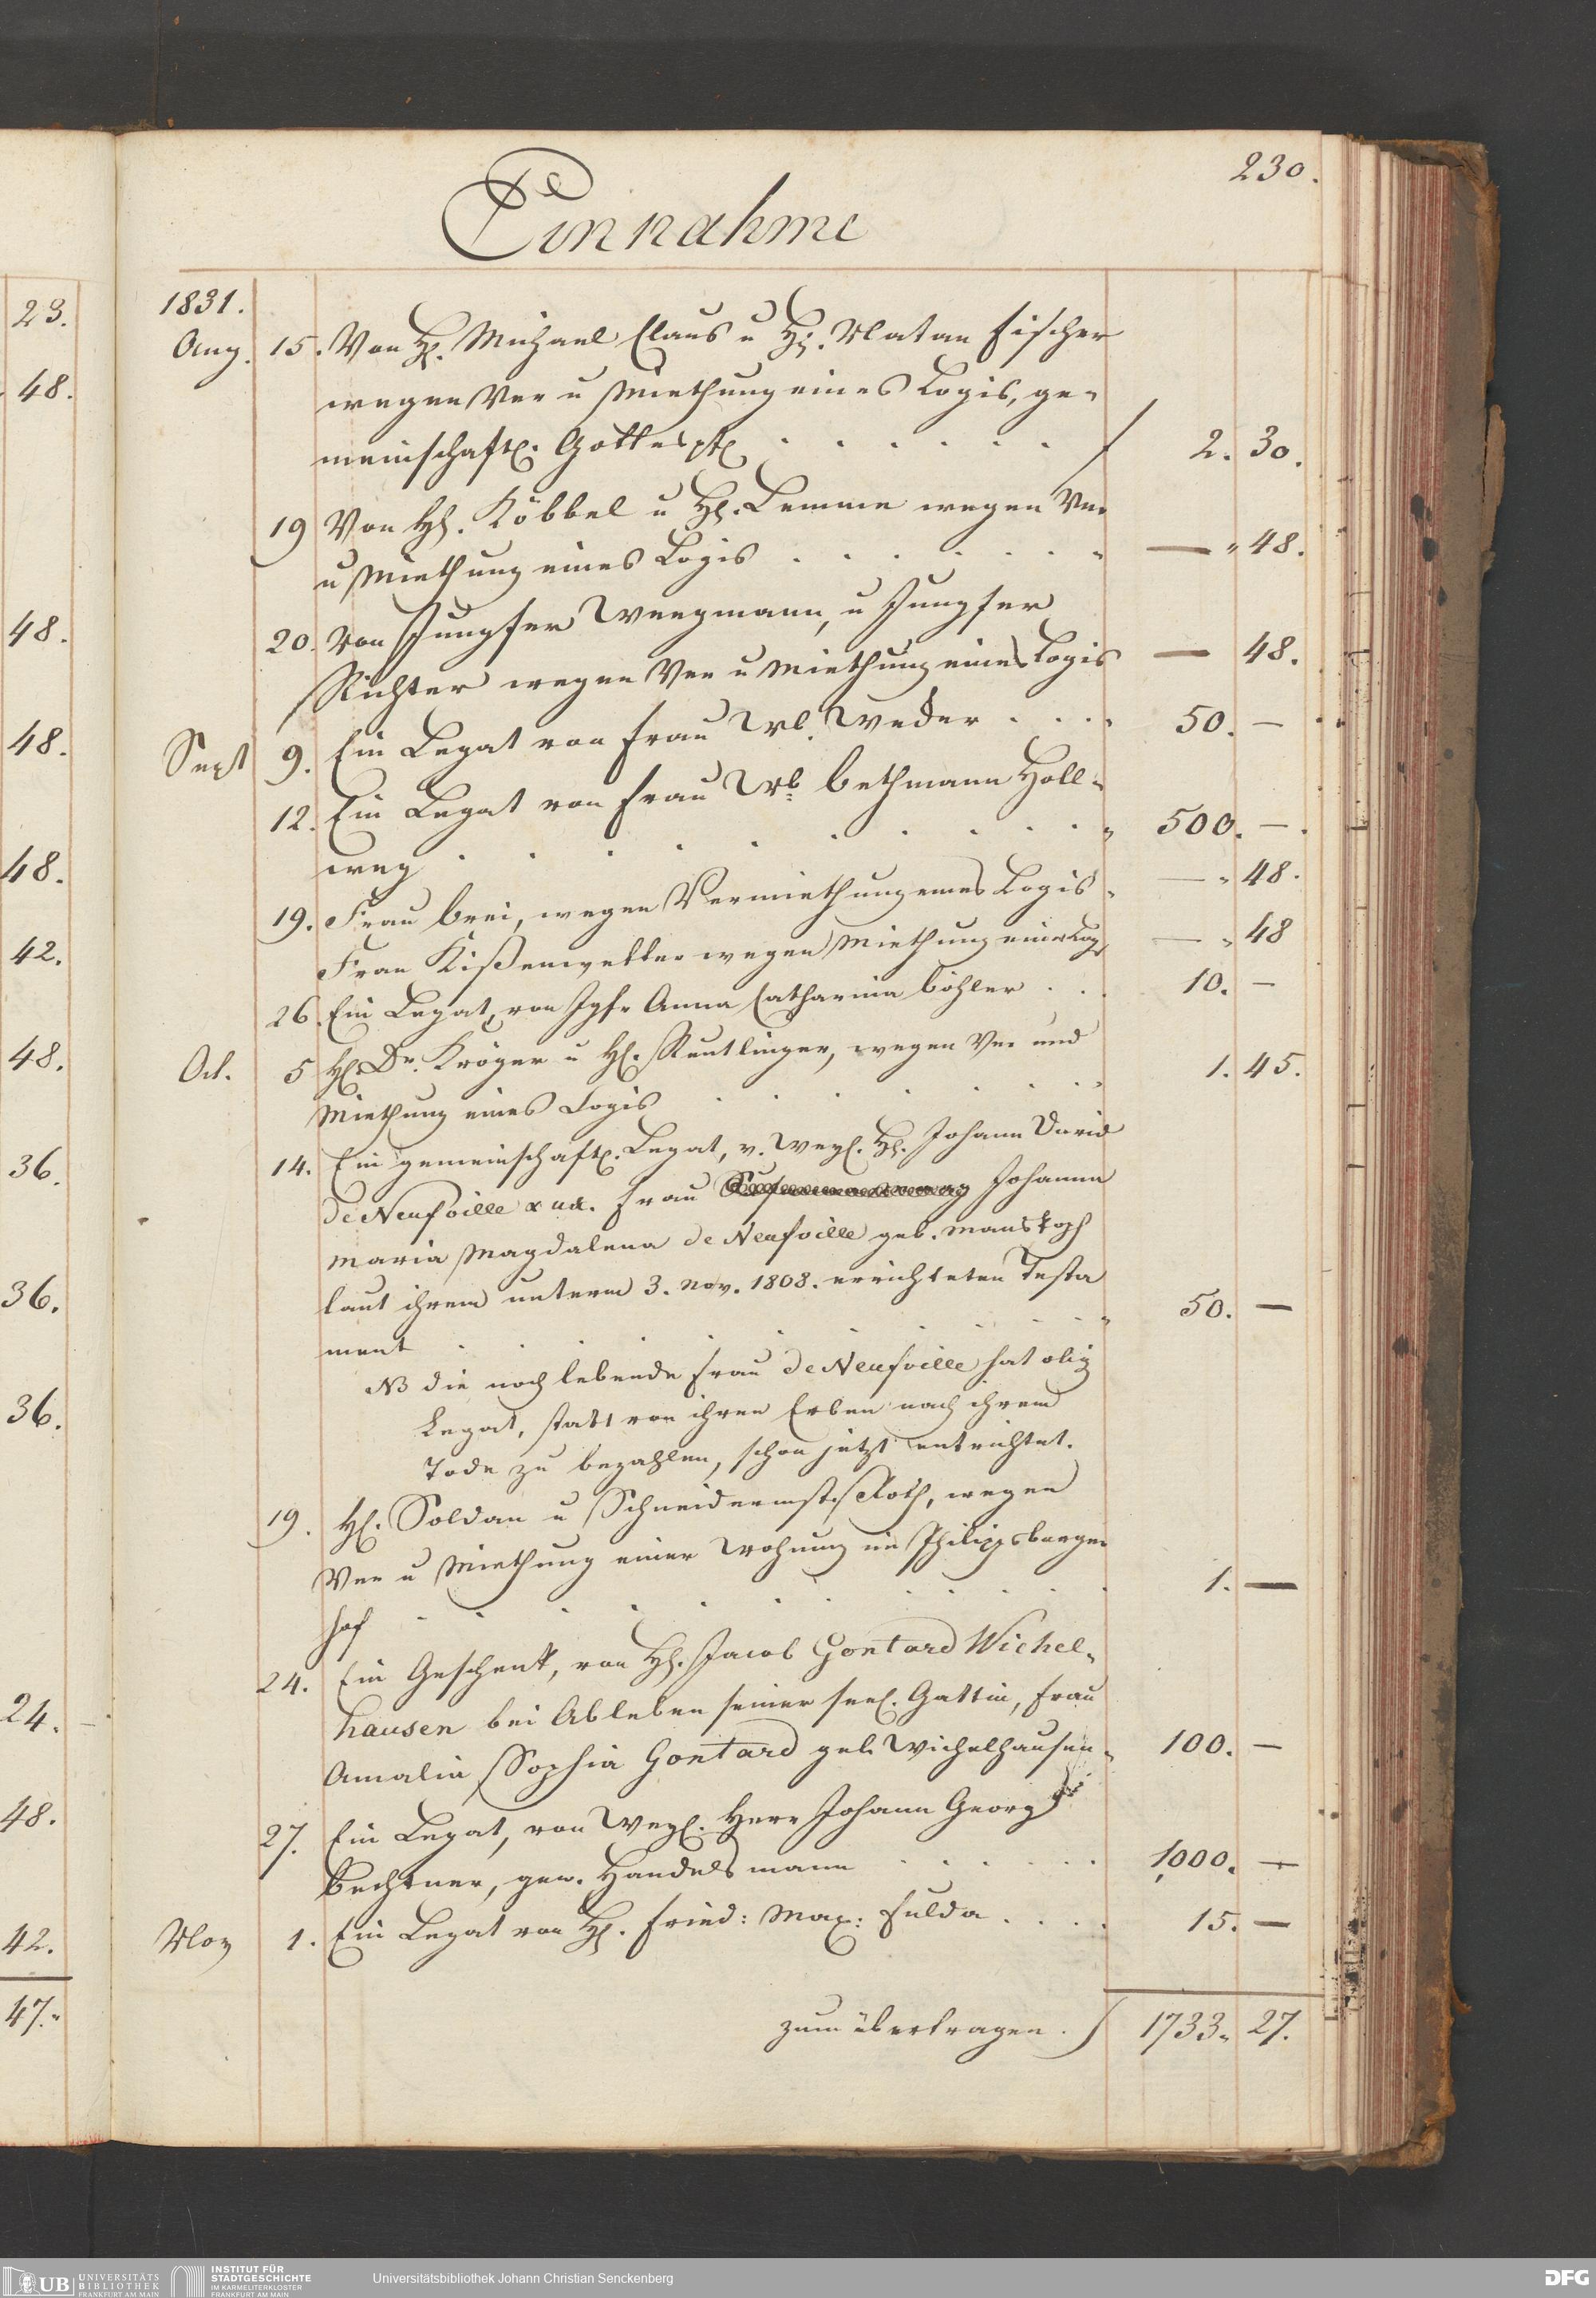 230.
Einnahme
1831.
Aug. 15. Von H. Michael Claus u H. Natan Fischer
wegen Ver u Miethung eines Logis, ge-
meinschaftl. Gottespf. 2. 30.
19 Von H. Köbbel u H. Lemme wegen Ver
u Miethung eines Logis — " 48.
20. Von Jungfer Weegmann, u Jungfer
Richter wegen Ver u Miethung eines Logis — 48.
Sept 9. Ein Legat von Frau Wb. Weder 50. —
12. Ein Legat von Frau Wb. Bethmann Holl-
weg 500. —.
19. Frau Brei, wegen Vermiethung eines Logis — " 48.
Frau Kißenwetter wegen Miethung eines Log. — " 48
26. Ein Legat, von Jgfr Anna Catharina Böhler 10. —
Oct. 5 H. Dr. Kröger u H. Reutlinger, wegen Ver und
Miethung eines Logis 1. 45.
14. Ein gemeinschaftl. Legat, v. Weyl. H. Johann David
de Neufville & ux. Frau Johanna
Maria Magdalena de Neufville geb. Manskopf
laut ihrem unterm 3. Nov. 1808. errichteten Testa
ment 50. —
NB die noch lebende Frau de Neufville hat obig
Legat, statt von ihren Erben nach ihrem
Tode zu bezahlen, schon jetzt entrichtet.
19. H. Soldan u Schneidermstr. Roth, wegen
Ver u Miethung einer Wohnung im Philippsburger
hof 1. —
24. Ein Geschenk, von H. Jacob Gontard Wichel-
hausen bei Ableben seiner seel. Gattin, Frau
Amalia Sophia Gontard geb. Wichelhausen 100. —
27. Ein Legat, von Weyl. Herr Johann Georg
Bechtner, gew. Handelsmann 1000. —
Nov 1. Ein Legat von H. Fried: Max: Fulda 15. —
zum übertragen. f 1733. 27.
23.
48.
48.
48.
48.
42.
48.
36.
36.
36.
24.
48.
42.
47.
UB UNIVERSITÄTS
BIBLIOTHEK
FRANKFURT AM MAIN
INSTITUT FÜR
STADTGESCHICHTE
IM KARMELITERKLOSTER
FRANKFURT AM MAIN
Universitätsbibliothek Johann Christian Senckenberg
DFG